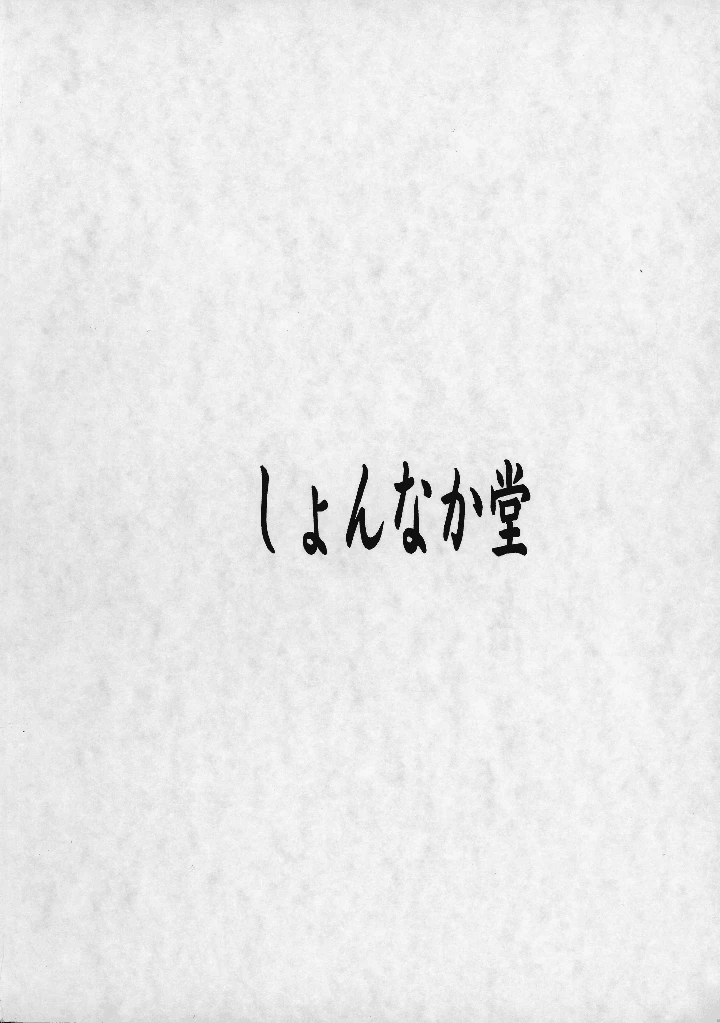 しょんなか堂